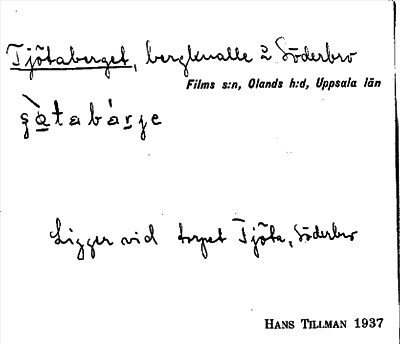 Tjötaberget, bergknalle 2 Söderbro
Films s:n, Olands h:d, Uppsala län
şø̀tabárje
Ligger vid torpet Tjöta, Söderbro
HANS TILLMAN 1937